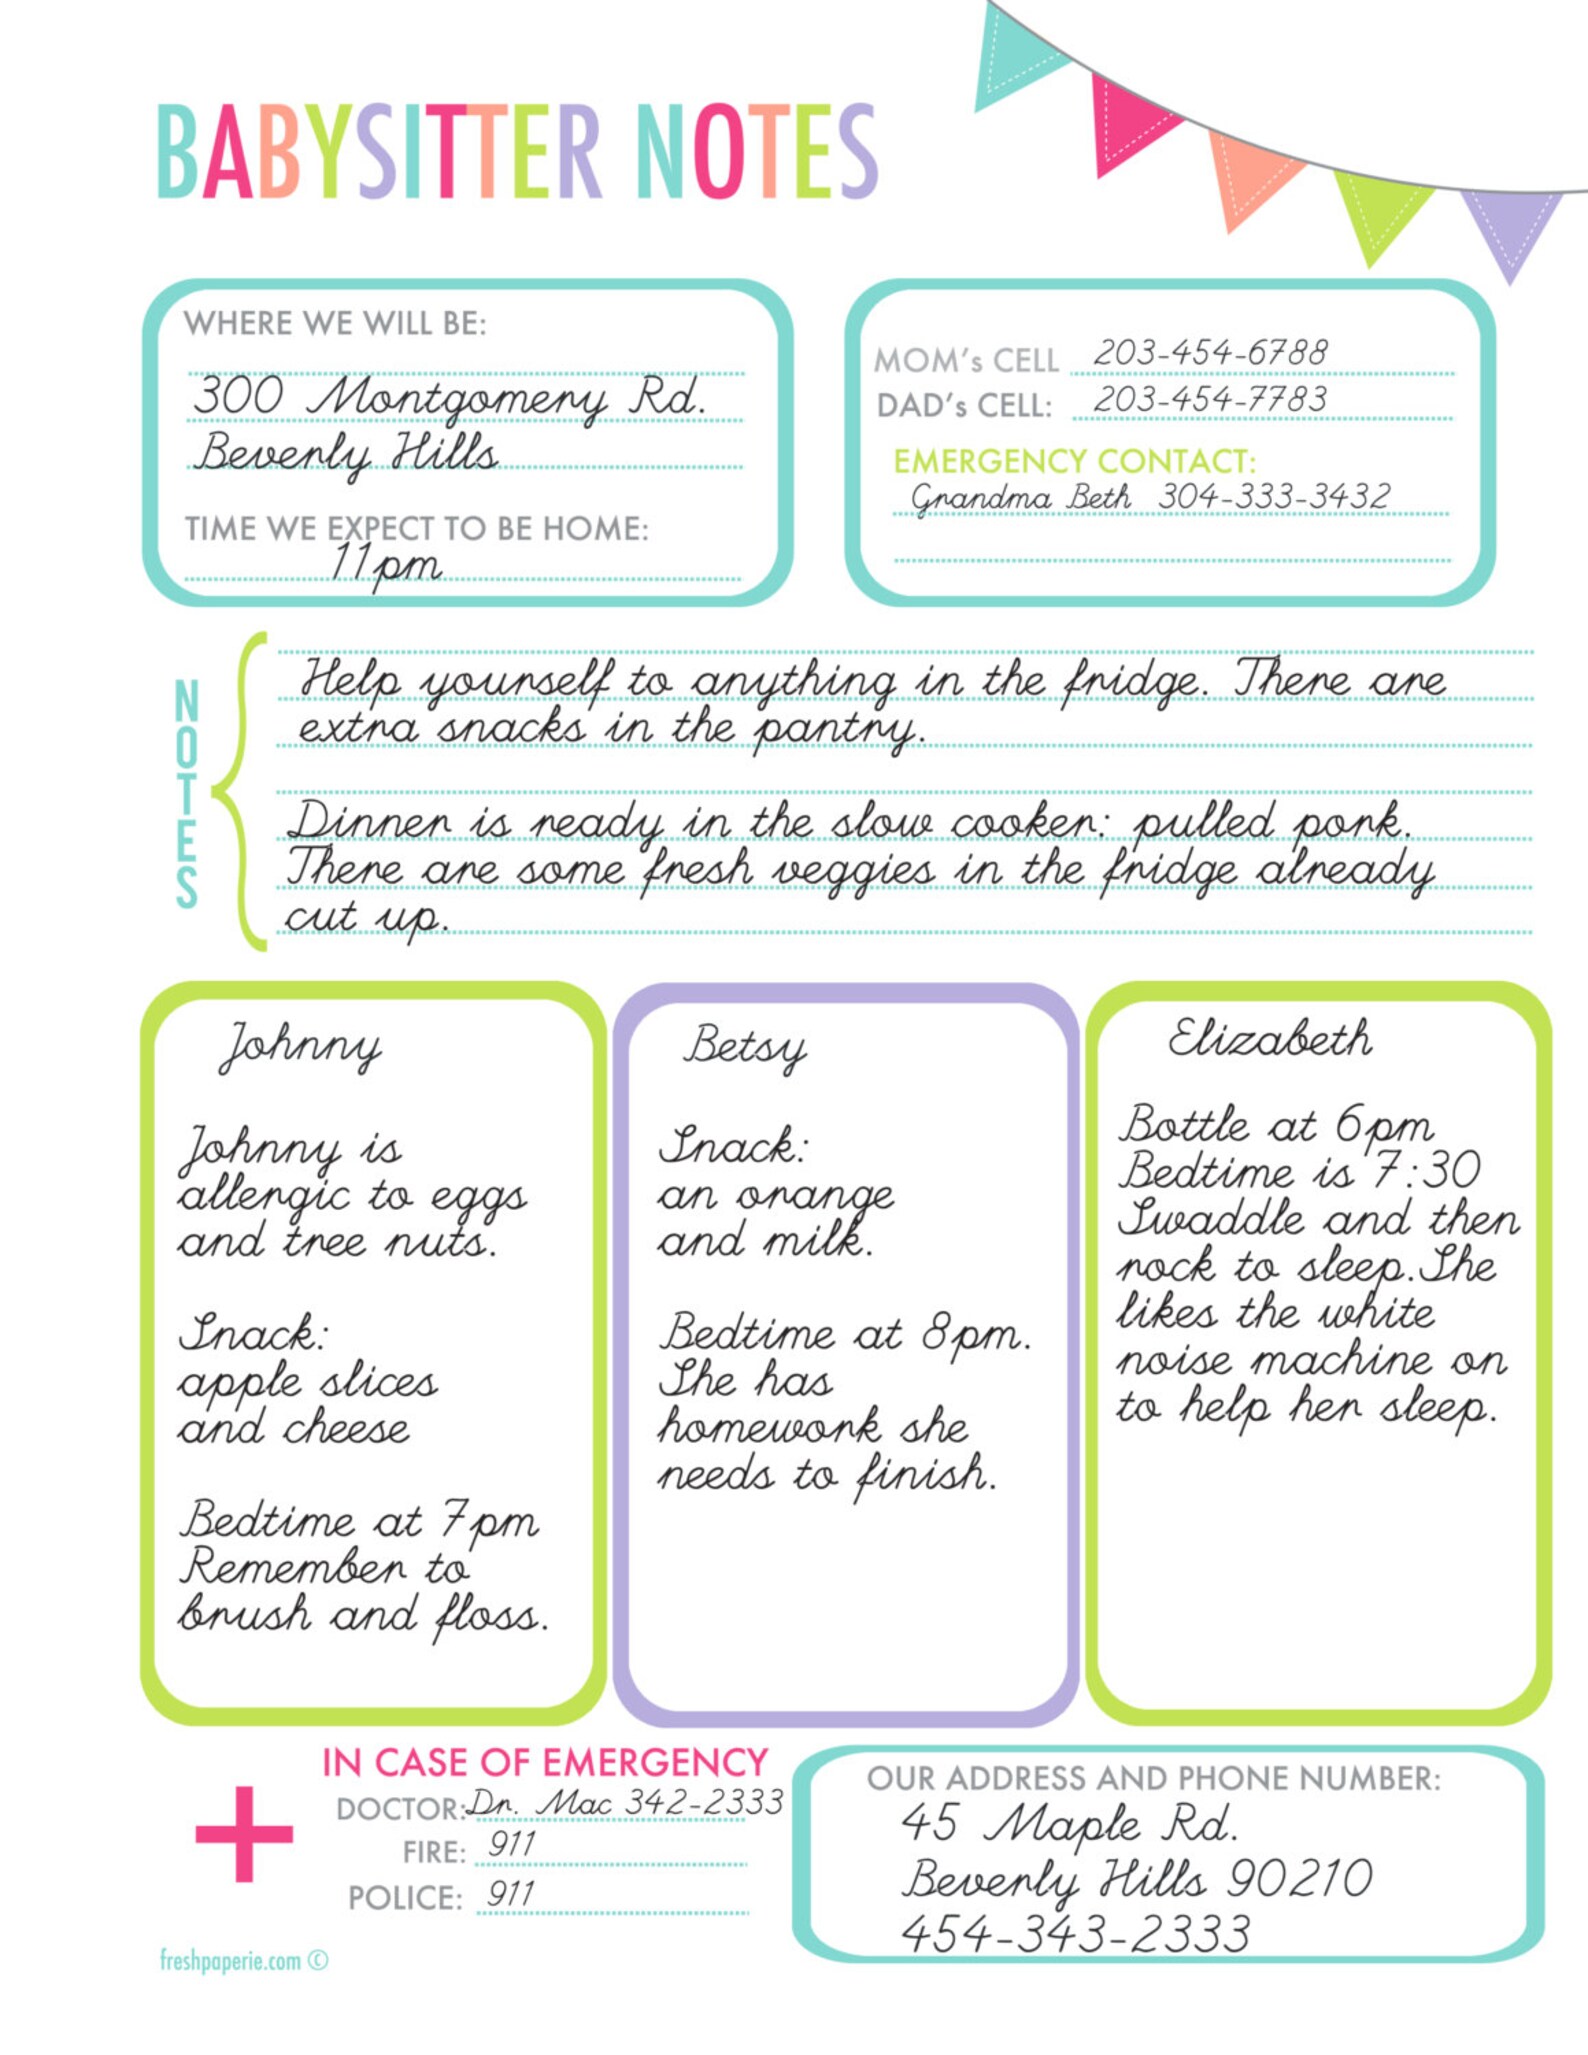 BABYSITTER NOTES
WHERE WE WILL BE:
300 Montgomery Rd.
Beverly Hills
TIME WE EXPECT TO BE HOME:
11pm
MOM's CELL 203-454-6788
DAD's CELL: 203-454-7783
EMERGENCY CONTACT:
Grandma Beth 304-333-3432
NOTES
Help yourself to anything in the fridge. There are
extra snacks in the pantry.
Dinner is ready in the slow cooker: pulled pork.
There are some fresh veggies in the fridge already
cut up.
Johnny
Johnny is
allergic to eggs
and tree nuts.
Snack:
apple slices
and cheese
Bedtime at 7pm
Remember to
brush and floss.
Betsy
Snack:
an orange
and milk.
Bedtime at 8pm.
She has
homework she
needs to finish.
Elizabeth
Bottle at 6pm
Bedtime is 7:30
Swaddle and then
rock to sleep.She
likes the white
noise machine on
to help her sleep.
IN CASE OF EMERGENCY
DOCTOR: Dr. Mac 342-2333
FIRE: 911
POLICE: 911
OUR ADDRESS AND PHONE NUMBER:
45 Maple Rd.
Beverly Hills 90210
454-343-2333
freshpaperie.com ©